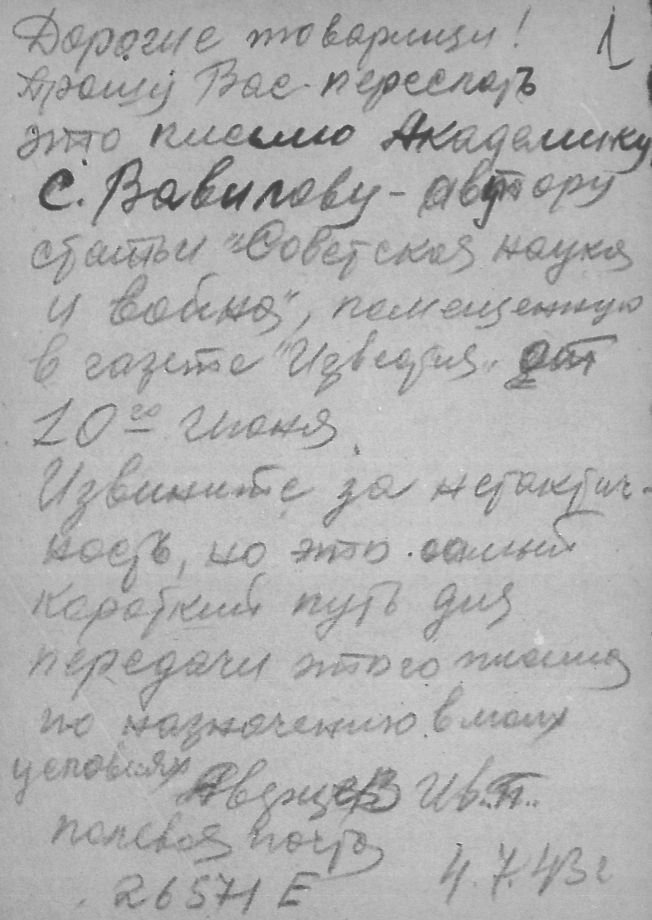 Дорогие товарищи! 1
Прошу Вас переслать
это письмо Академику
С. Вавилову - автору
статьи "Советская наука
и война", помещенную
в газете "Известия" от
10го Июня.
Извините за нетактич-
ность, но это самый
короткий путь для
передачи этого письма
по назначению в моих
условиях
Ив. П.
полевая почта
26571 Е 4.7.43 г